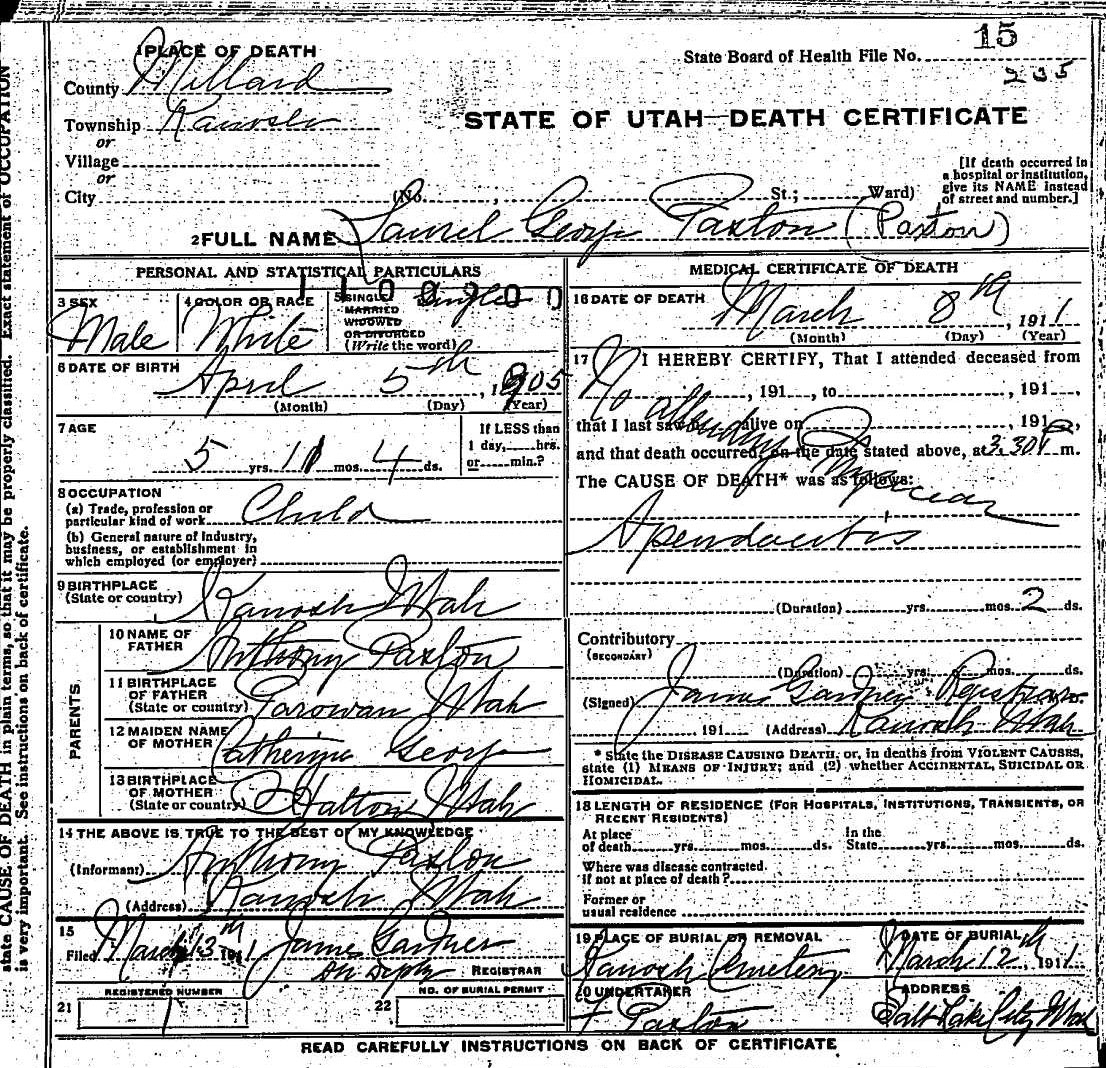 state CAUSE OF DEATH in plain terms, so that it may be properly classified. Exact statement of OCCUPATION
is very important. See instructions on back of certificate.
1 PLACE OF DEATH
County Millard
Township Kanosh
or
Village
or
City
15
State Board of Health File No.
235
STATE OF UTAH—DEATH CERTIFICATE
(No. , St.; Ward)
[If death occurred in
a hospital or institution,
give its NAME instead
of street and number.]
2 FULL NAME Laurel George Paxton (Paxton)
PERSONAL AND STATISTICAL PARTICULARS
1100200
3 SEX
Male
4 COLOR OR RACE
White
5 SINGLE Single
MARRIED
WIDOWED
OR DIVORCED
(Write the word)
6 DATE OF BIRTH
April 5th, 1905
(Month) (Day) (Year)
7 AGE
5 yrs. 11 mos. 4 ds.
If LESS than
1 day, hrs.
or min.?
8 OCCUPATION
(a) Trade, profession or
particular kind of work Child
(b) General nature of industry,
business, or establishment in
which employed (or employer)
9 BIRTHPLACE
(State or country) Kanosh Utah
PARENTS
10 NAME OF
FATHER Anthony Paxton
11 BIRTHPLACE
OF FATHER
(State or country) Parowan Utah
12 MAIDEN NAME
OF MOTHER Catherine George
13 BIRTHPLACE
OF MOTHER
(State or country) Utah
14 THE ABOVE IS TRUE TO THE BEST OF MY KNOWLEDGE
(Informant) Anthony Paxton
(Address) Kanosh Utah
15
Filed March 13th 191 James Gardner
REGISTRAR
REGISTERED NUMBER
21 1
NO. OF BURIAL PERMIT
22
MEDICAL CERTIFICATE OF DEATH
16 DATE OF DEATH
March 8th, 1911
(Month) (Day) (Year)
17 I HEREBY CERTIFY, That I attended deceased from
, 191 , to , 191 ,
that I last saw h alive on , 191 ,
and that death occurred, on the date stated above, at 3.30 P m.
The CAUSE OF DEATH* was as follows:
No attending Physician
Apendacitis
(Duration) yrs. mos. 2 ds.
Contributory
(SECONDARY)
(Duration) yrs. mos. ds.
(Signed) James Gardner Registrar
, 191 (Address) Kanosh Utah
* State the DISEASE CAUSING DEATH, or, in deaths from VIOLENT CAUSES,
state (1) MEANS OF INJURY; and (2) whether ACCIDENTAL, SUICIDAL OR
HOMICIDAL.
18 LENGTH OF RESIDENCE (FOR HOSPITALS, INSTITUTIONS, TRANSIENTS, OR
RECENT RESIDENTS)
At place
of death yrs. mos. ds.
In the
State yrs. mos. ds.
Where was disease contracted.
If not at place of death?
Former or
usual residence
19 PLACE OF BURIAL OR REMOVAL
Kanosh Cemetery
DATE OF BURIAL
March 12th, 1911
20 UNDERTAKER
F Paxton
ADDRESS
Salt Lake City Utah
READ CAREFULLY INSTRUCTIONS ON BACK OF CERTIFICATE